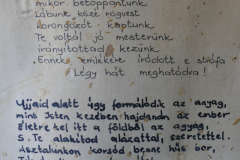 mikor betoppontunk
Lábunk közé rögvest
korongozót kaptunk
Te voltál jó mesterünk
irányítottad kezünk
Ennek emlékére íródott e strófa
Légy hát meghatódva!
Ujjaid alatt úgy formálódik az anyag,
mint Isten kezében hajdanán az ember
Életre kel itt a földből az agyag,
s Te alakítod alázattal, szeretettel.
Asztalunkon korsód, benne hűs bor,